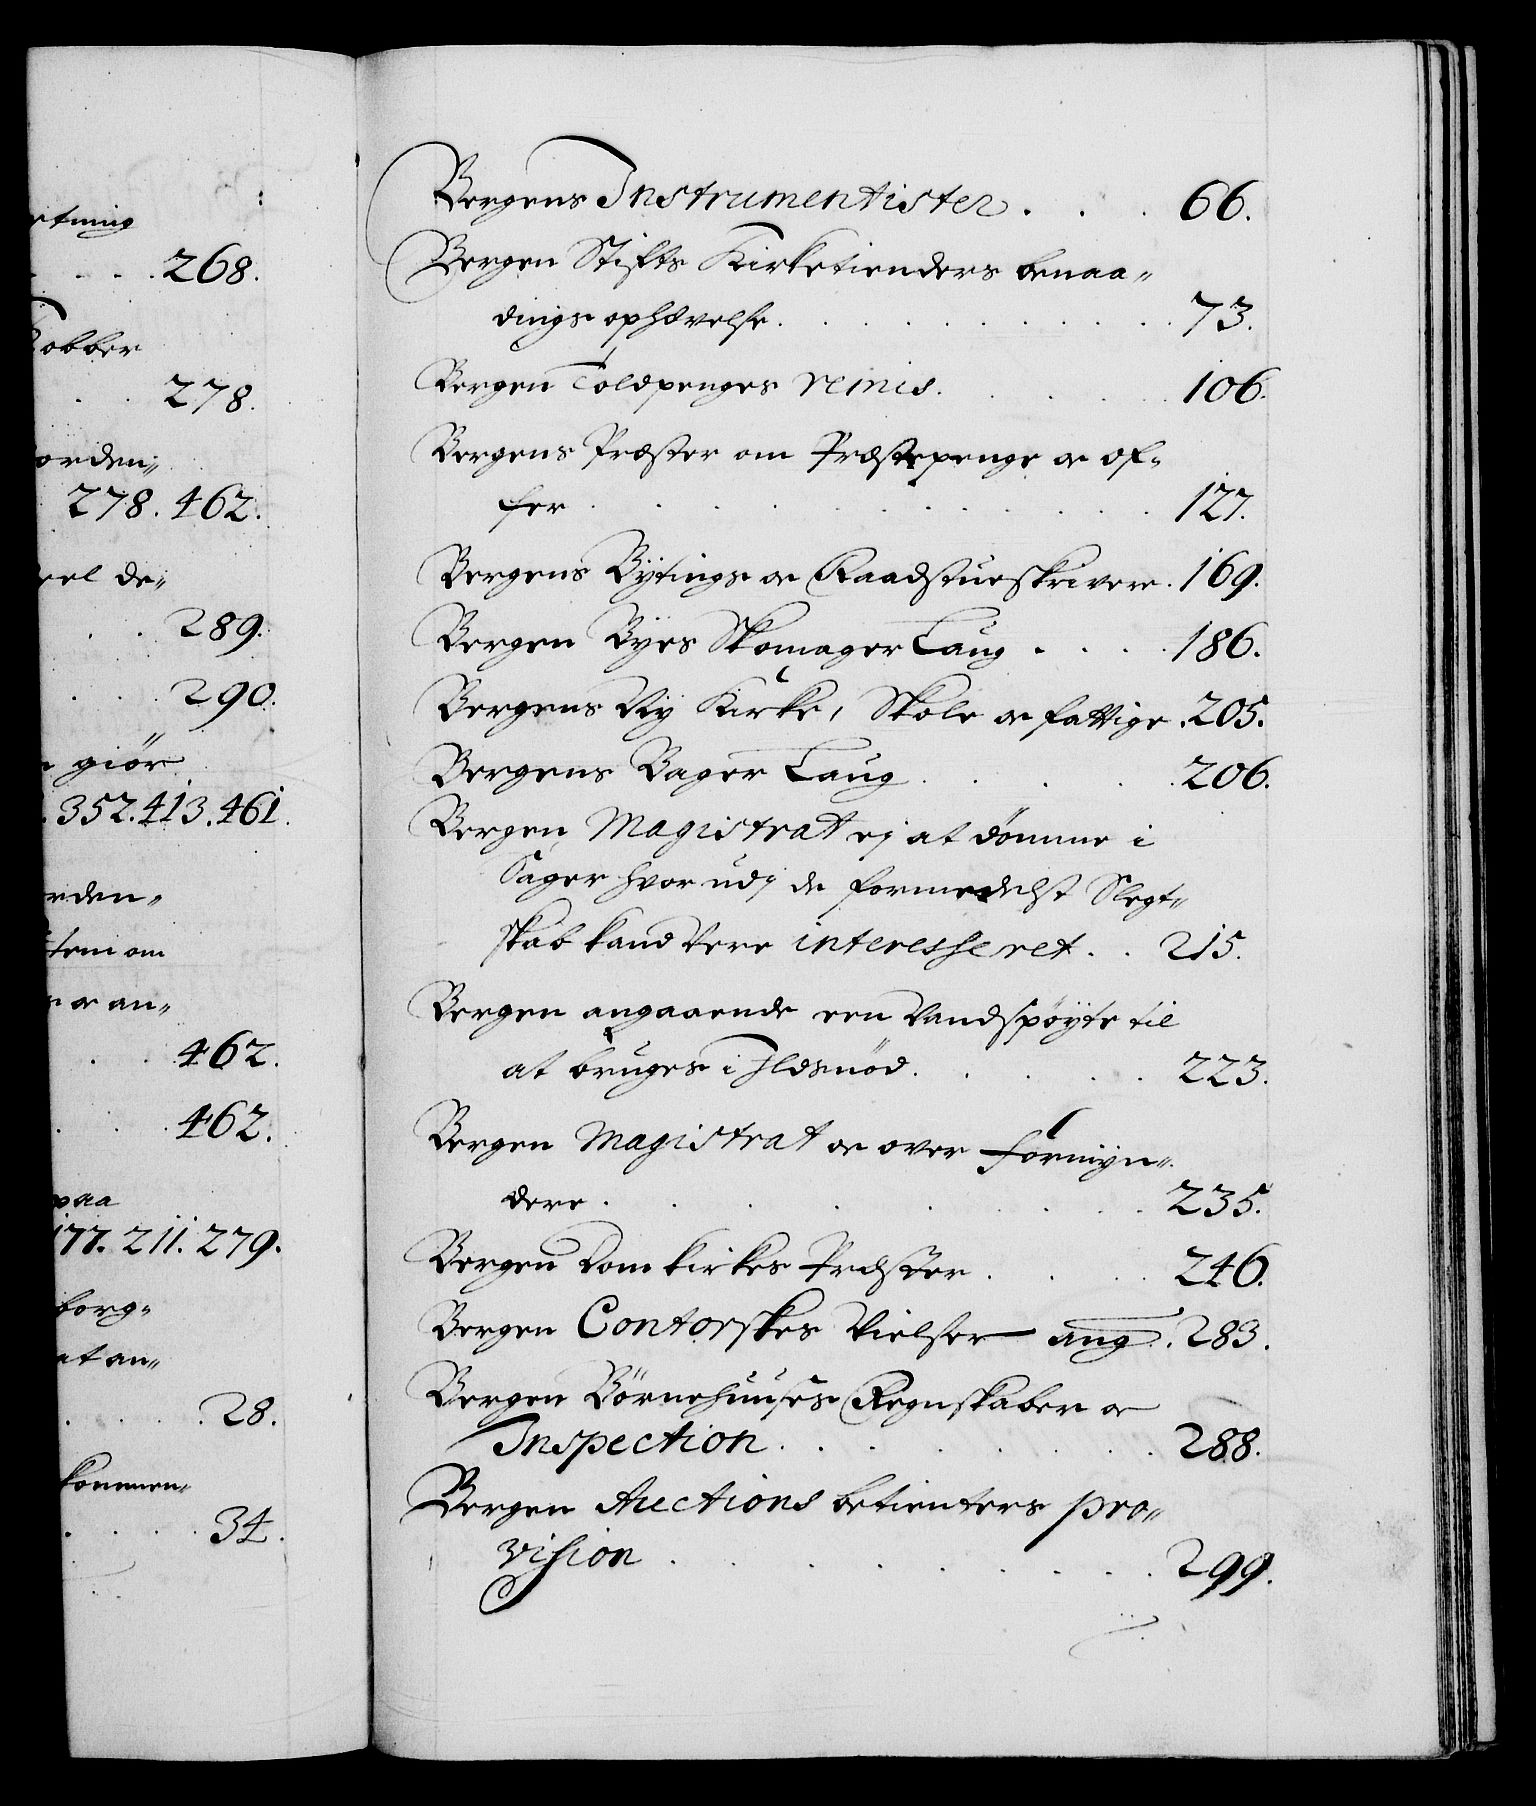 rtning
. . . 268.
Kobber
. . 278.
orden=
278. 462.
eel de=
. . 289.
. . 290.
giör
. 352. 413. 461.
rden=
item om
oc an=
. . 462.
. . 462.
paa
177. 211. 279.
borg=
at an=
. . . . 28.
kommen=
. . . . 34.
Bergens Instrumentister . . . 66.
Bergen Stifts Kirketienders benaa=
dings ophævelse . . . . . . . 73.
Bergen Toldpenges remis . . . . 106.
Bergens Præster om Præstepenge oc of=
fer . . . . . . . . . 127.
Bergens Bytings oc Raadstueskrivere . 169.
Bergen Byes Skomager Laug . . . . 186.
Bergens Ny Kirke, Skole oc fattige . 205.
Bergens Bager Laug . . . . 206.
Bergen Magistrat ej at dömme i
Sager hvor udj de formedelst Slegt=
skab kand Vere interesseret . . 215.
Bergen angaaende een Vandspöyte til
at bruges i Ildsnöd . . . . . 223.
Bergen Magistrat oc over formyn=
dere . . . . . . . . 235.
Bergen Domkirkes Præster . . . . 246.
Bergen Contorskes Vielser ang . 283.
Bergen Börnehuuses Regnskaber oc
Inspection . . . . . . . 288.
Bergen Auctions betienters pro=
vision . . . . . . . 299.